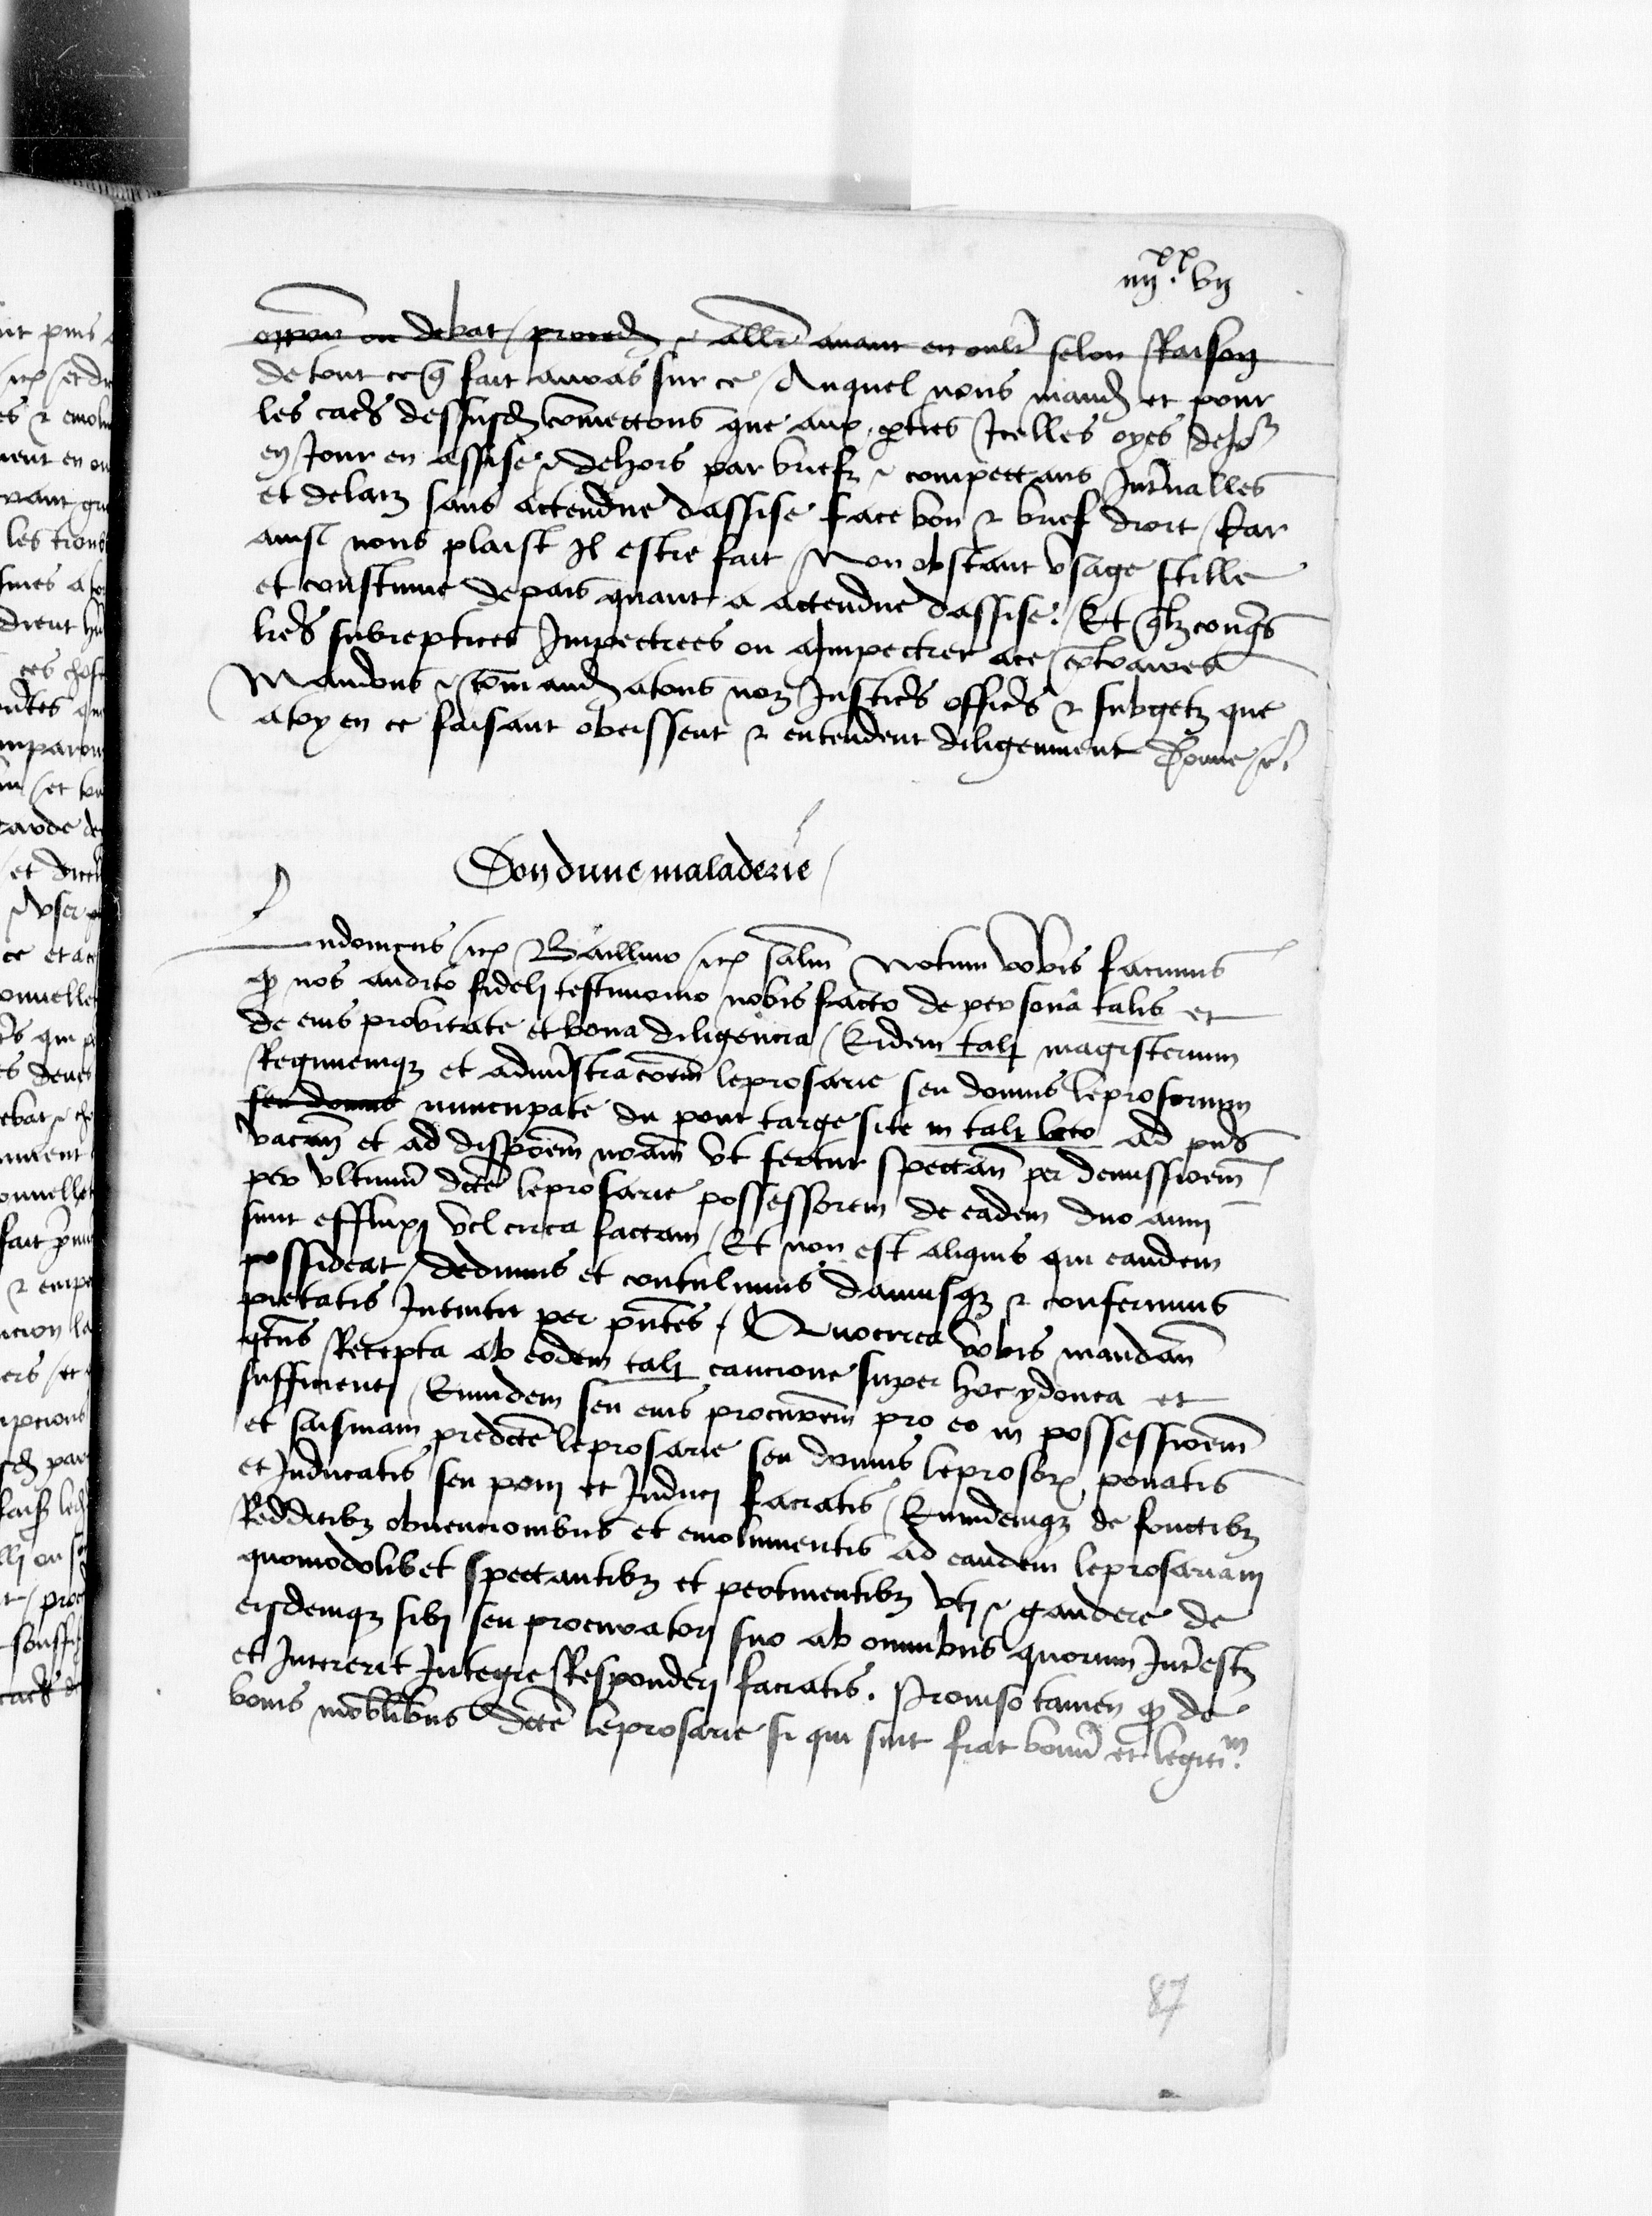 iiij.xx vij
oppon ou debat / proced~ & aller avant en oultr selon Raison
de tout ce q~ fait auras sur ce / Auquel nous mand~ et pour
les cas dessusd~ cometons que aux p~ties Icelles oyes de Jo~
en Jour en assise & dehors par briefz & compettans Int~valles
et delaiz sans attendue dassise face bon & brief droit / Kar
ainsi nous plaist Il estre fait / Non obstant usage stille
et coustume de pais quant a attendue dassise. Et q~lzconq~s
lr~es subreptices Impectrees ou a Impectrer a ce cont~aires
Mandons & com~andons a tous noz Justic~s offic~s & subgetz que
a toy en ce faisant obeissent & entendent diligemment Donne &c.
Don dune maladerie
Ludovicus etc Baillivo etc sal~m Notum vobis facimus
q~ nos audito fideli testimonio nobis facto de persona talis et
de eius probitate et bona diligencia / Eidem tali magisterium
Regimemq~ et administracoem leprosarie seu domus leprosorum
seu domus nuncupate du pont targe site in tali loco ad p~ns
vacan~ et ad disp~oem n~ram ut fertur spectan~ per demissioem~
per ultimum d~cte leprosarie possessorem de eadem duo anni
sunt effluxi vel circa factam / Et non est aliquis qui eandem
possideat / dedimus et contulimus damusq~ & conferimus
pietatis Intuitu per p~ntes. Quocirca vobis mandam~
q~tenus Recepta ab eodem tali caucione super hoc ydonea et
sufficienti / Eumdem seu eius procur~em pro eo in possessioem~
et saisinam predicte leprosarie seu domus leprosor~ ponatis
et Inducatis seu poni et Induci faciatis / Eumdemq~ de fructib~
Redditib~ obvencionibus et emolumentis ad eandem leprosariam
quomodolibet spectantib~ et pertinentib~ uti & gaudere de
eisdemq~ sibi seu procuratori suo ab omnibus quorum Int~est
et Intererit Integre Responderi faciatis. Proviso tamen q~ de
bonis mobilibus d~cte leprosarie si qui sint fiat bonu~ et legiti~m.
87